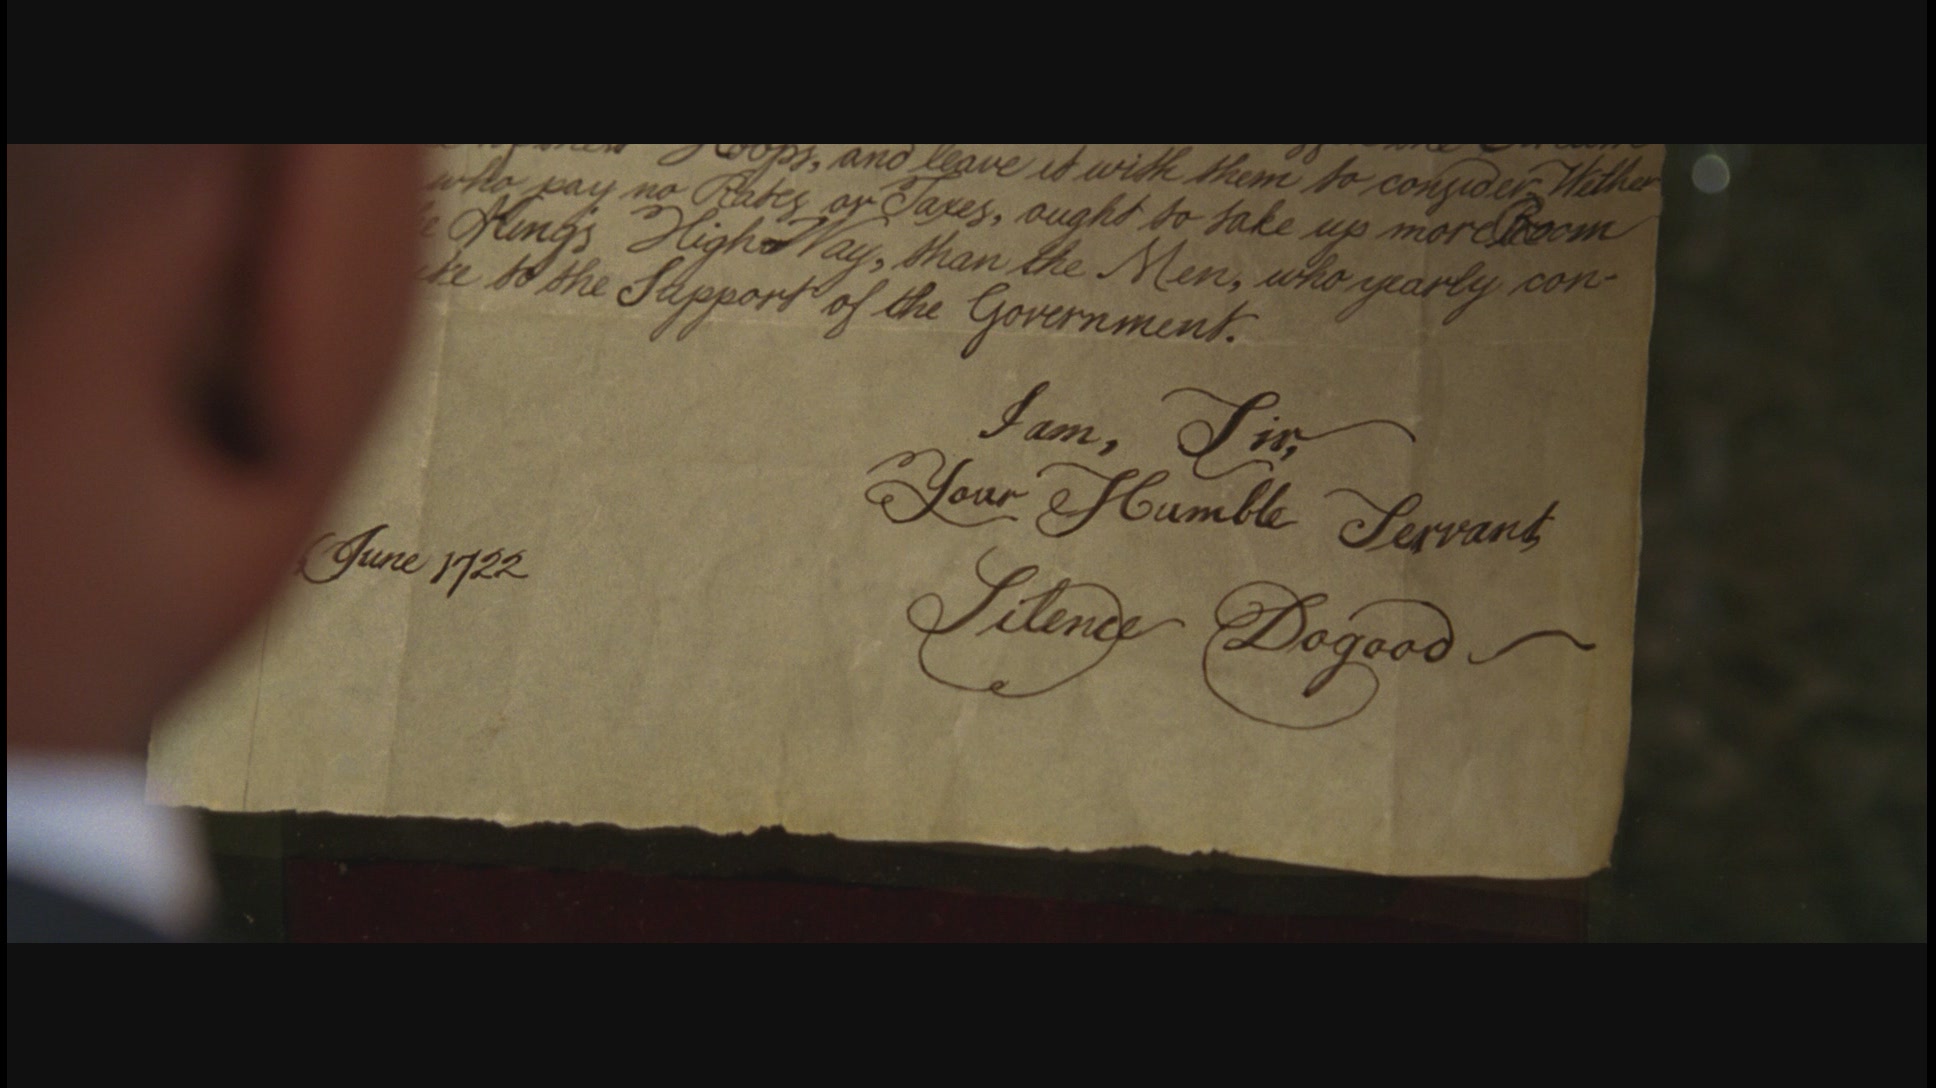 Hoops, and leave it with them to consider, Wither
who pay no Rates or Taxes, ought to take up more Room
King's High-Way, than the Men, who yearly con-
to the Support of the Government.
I am, Sir,
Your Humble Servant
June 1722
Silence Dogood